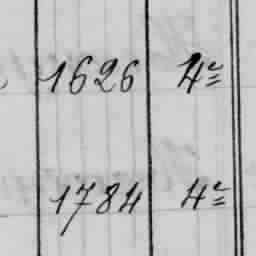 1626 4e
1784 4e